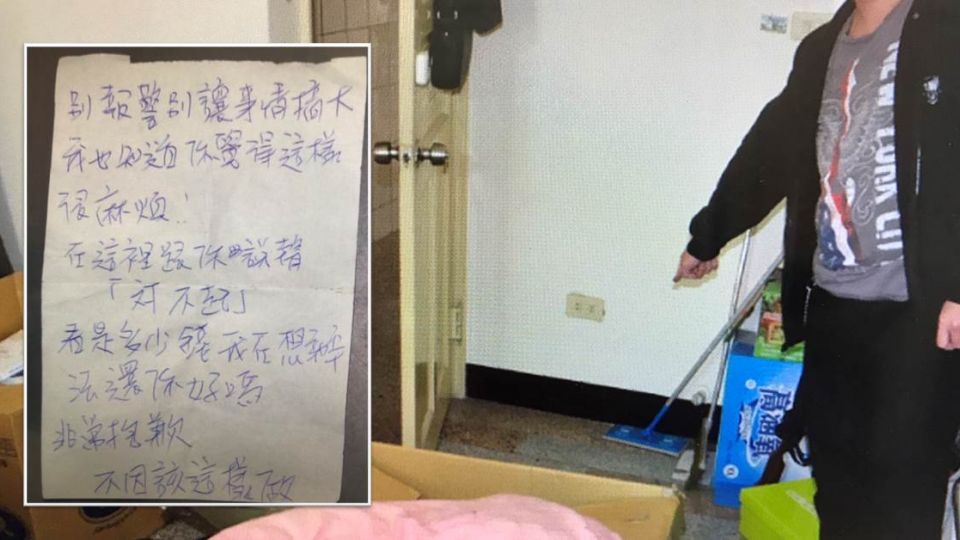 別報警別讓事情搞大
我也知道你覺得這樣
很麻煩!
在這裡跟你說聲
「対不起」
看是多少錢我在想辦
法還你好嗎
非常抱歉
不因該這樣做
NEW YORK CIT